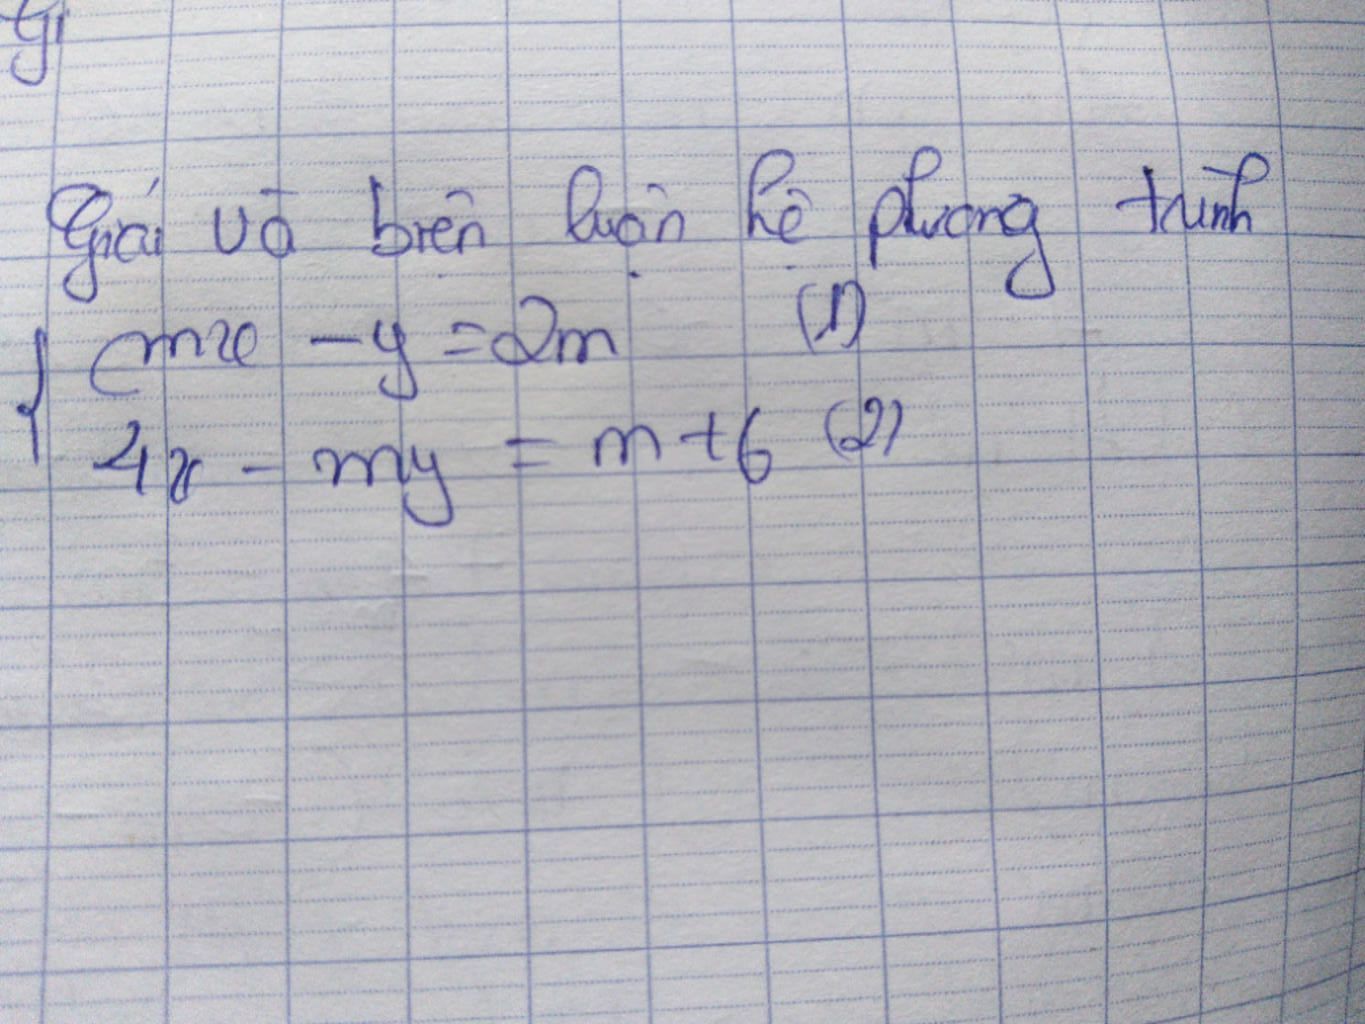 Gi
Giải và biện luận hệ phương trình
{ mx - y = 2m (1)
4x - my = m + 6 (2)